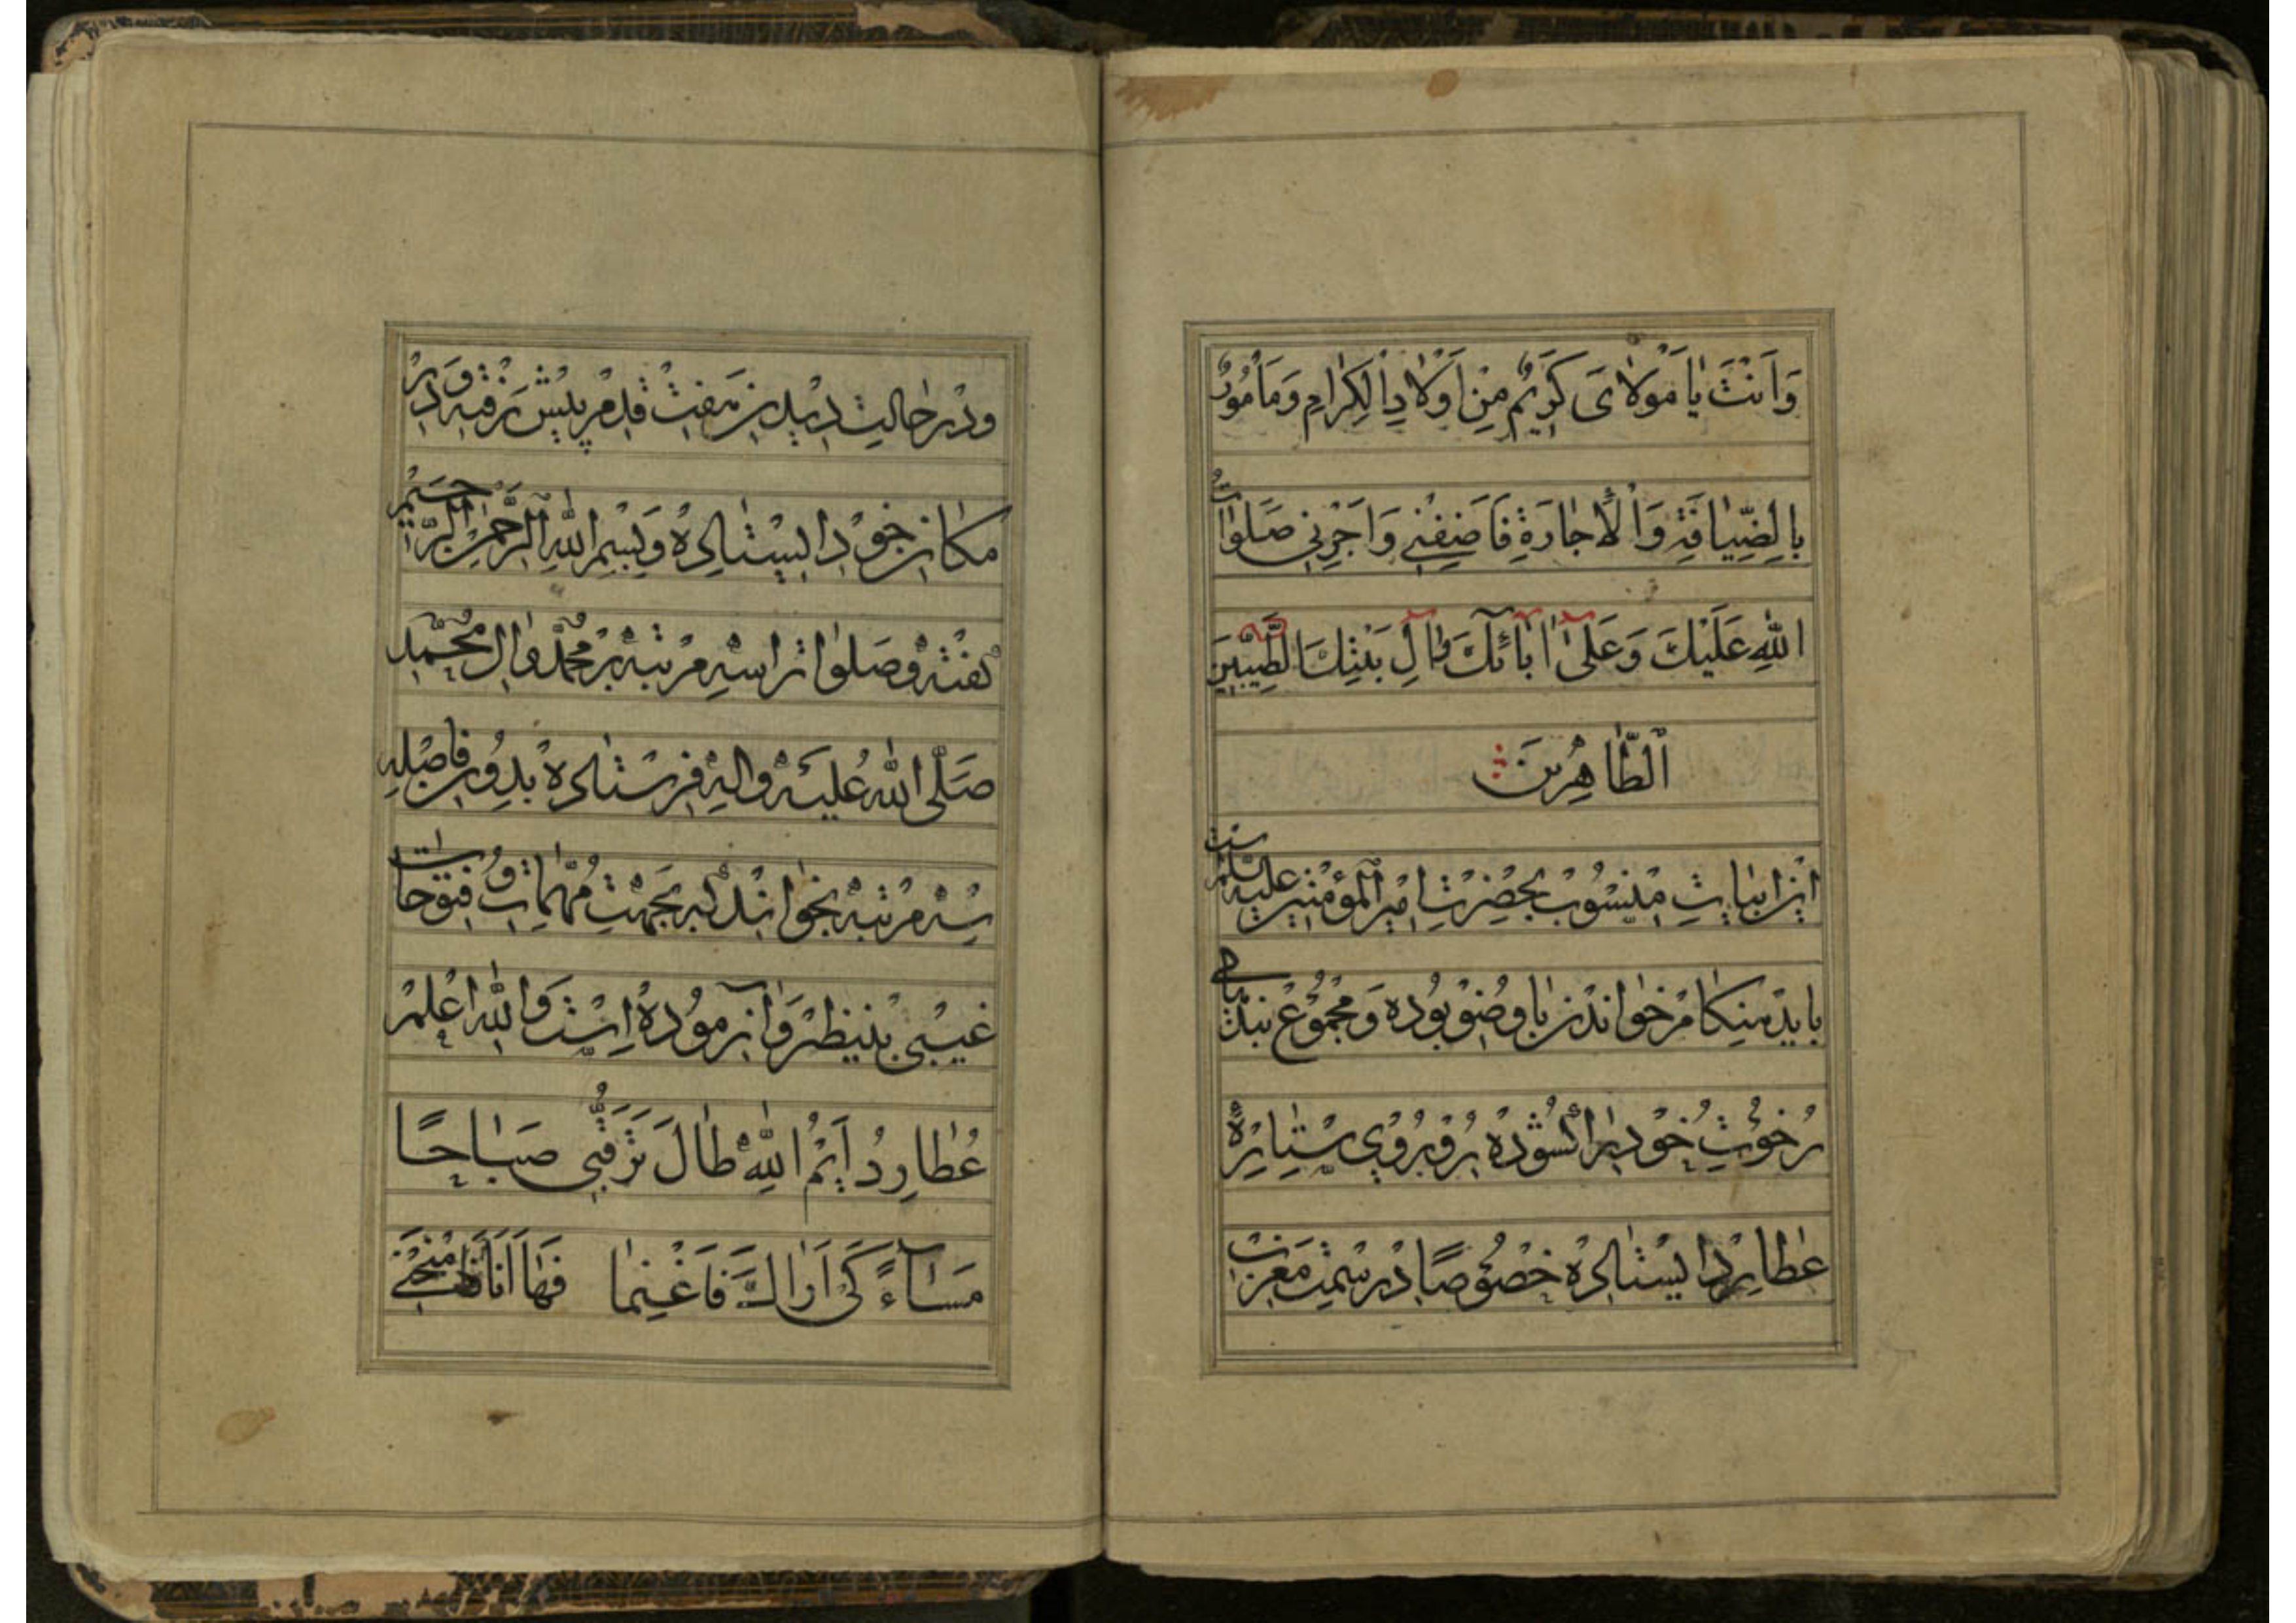 وَاَنْتَ يا مَوْلاىَ كَرِيمٌ مِنْ اَوْلادِ الْكِرامِ وَمَاْمُورٌ
بِالضِّيافَةِ وَالْاِجارَةِ فَاَضِفْنى وَاَجِرْنى صَلَواتُ
اللهِ عَلَيْكَ وَعَلى ابآئِكَ وَآلِ بَيْتِكَ الطَّيِّبينَ
الطّاهِرينَ
اين ابيات منسوب بحضرت امير المؤمنين عليه سلمست
بايد هنكام خواندن با وضو بوده و مجموع بندهاى
رخوت خود را كشوده رو بروى ستاره
عطارد ايستاده خصوصاً در سمت مغرب
ودر حالت ديدن هفت قدم پيش رفته و در
مكان خود ايستاده و بسم الله الرحمن الرحيم
كفته و صلوات را سه مرتبه بر محمد وال محمد
صلى الله عليه واله فرستاده بدون فاصله
سه مرتبه بخواند كه بجهت مهمات و فتوحات
غيبى بينظير و آزموده است والله اعلم
عُطارِدُ اَيْمُ اللهِ طالَ تَرَقُّبى صَباحًا
مَسآءً كَىْ اَراكَ فَاَغْنِما فَها اَنَا فَامْنَحْنى